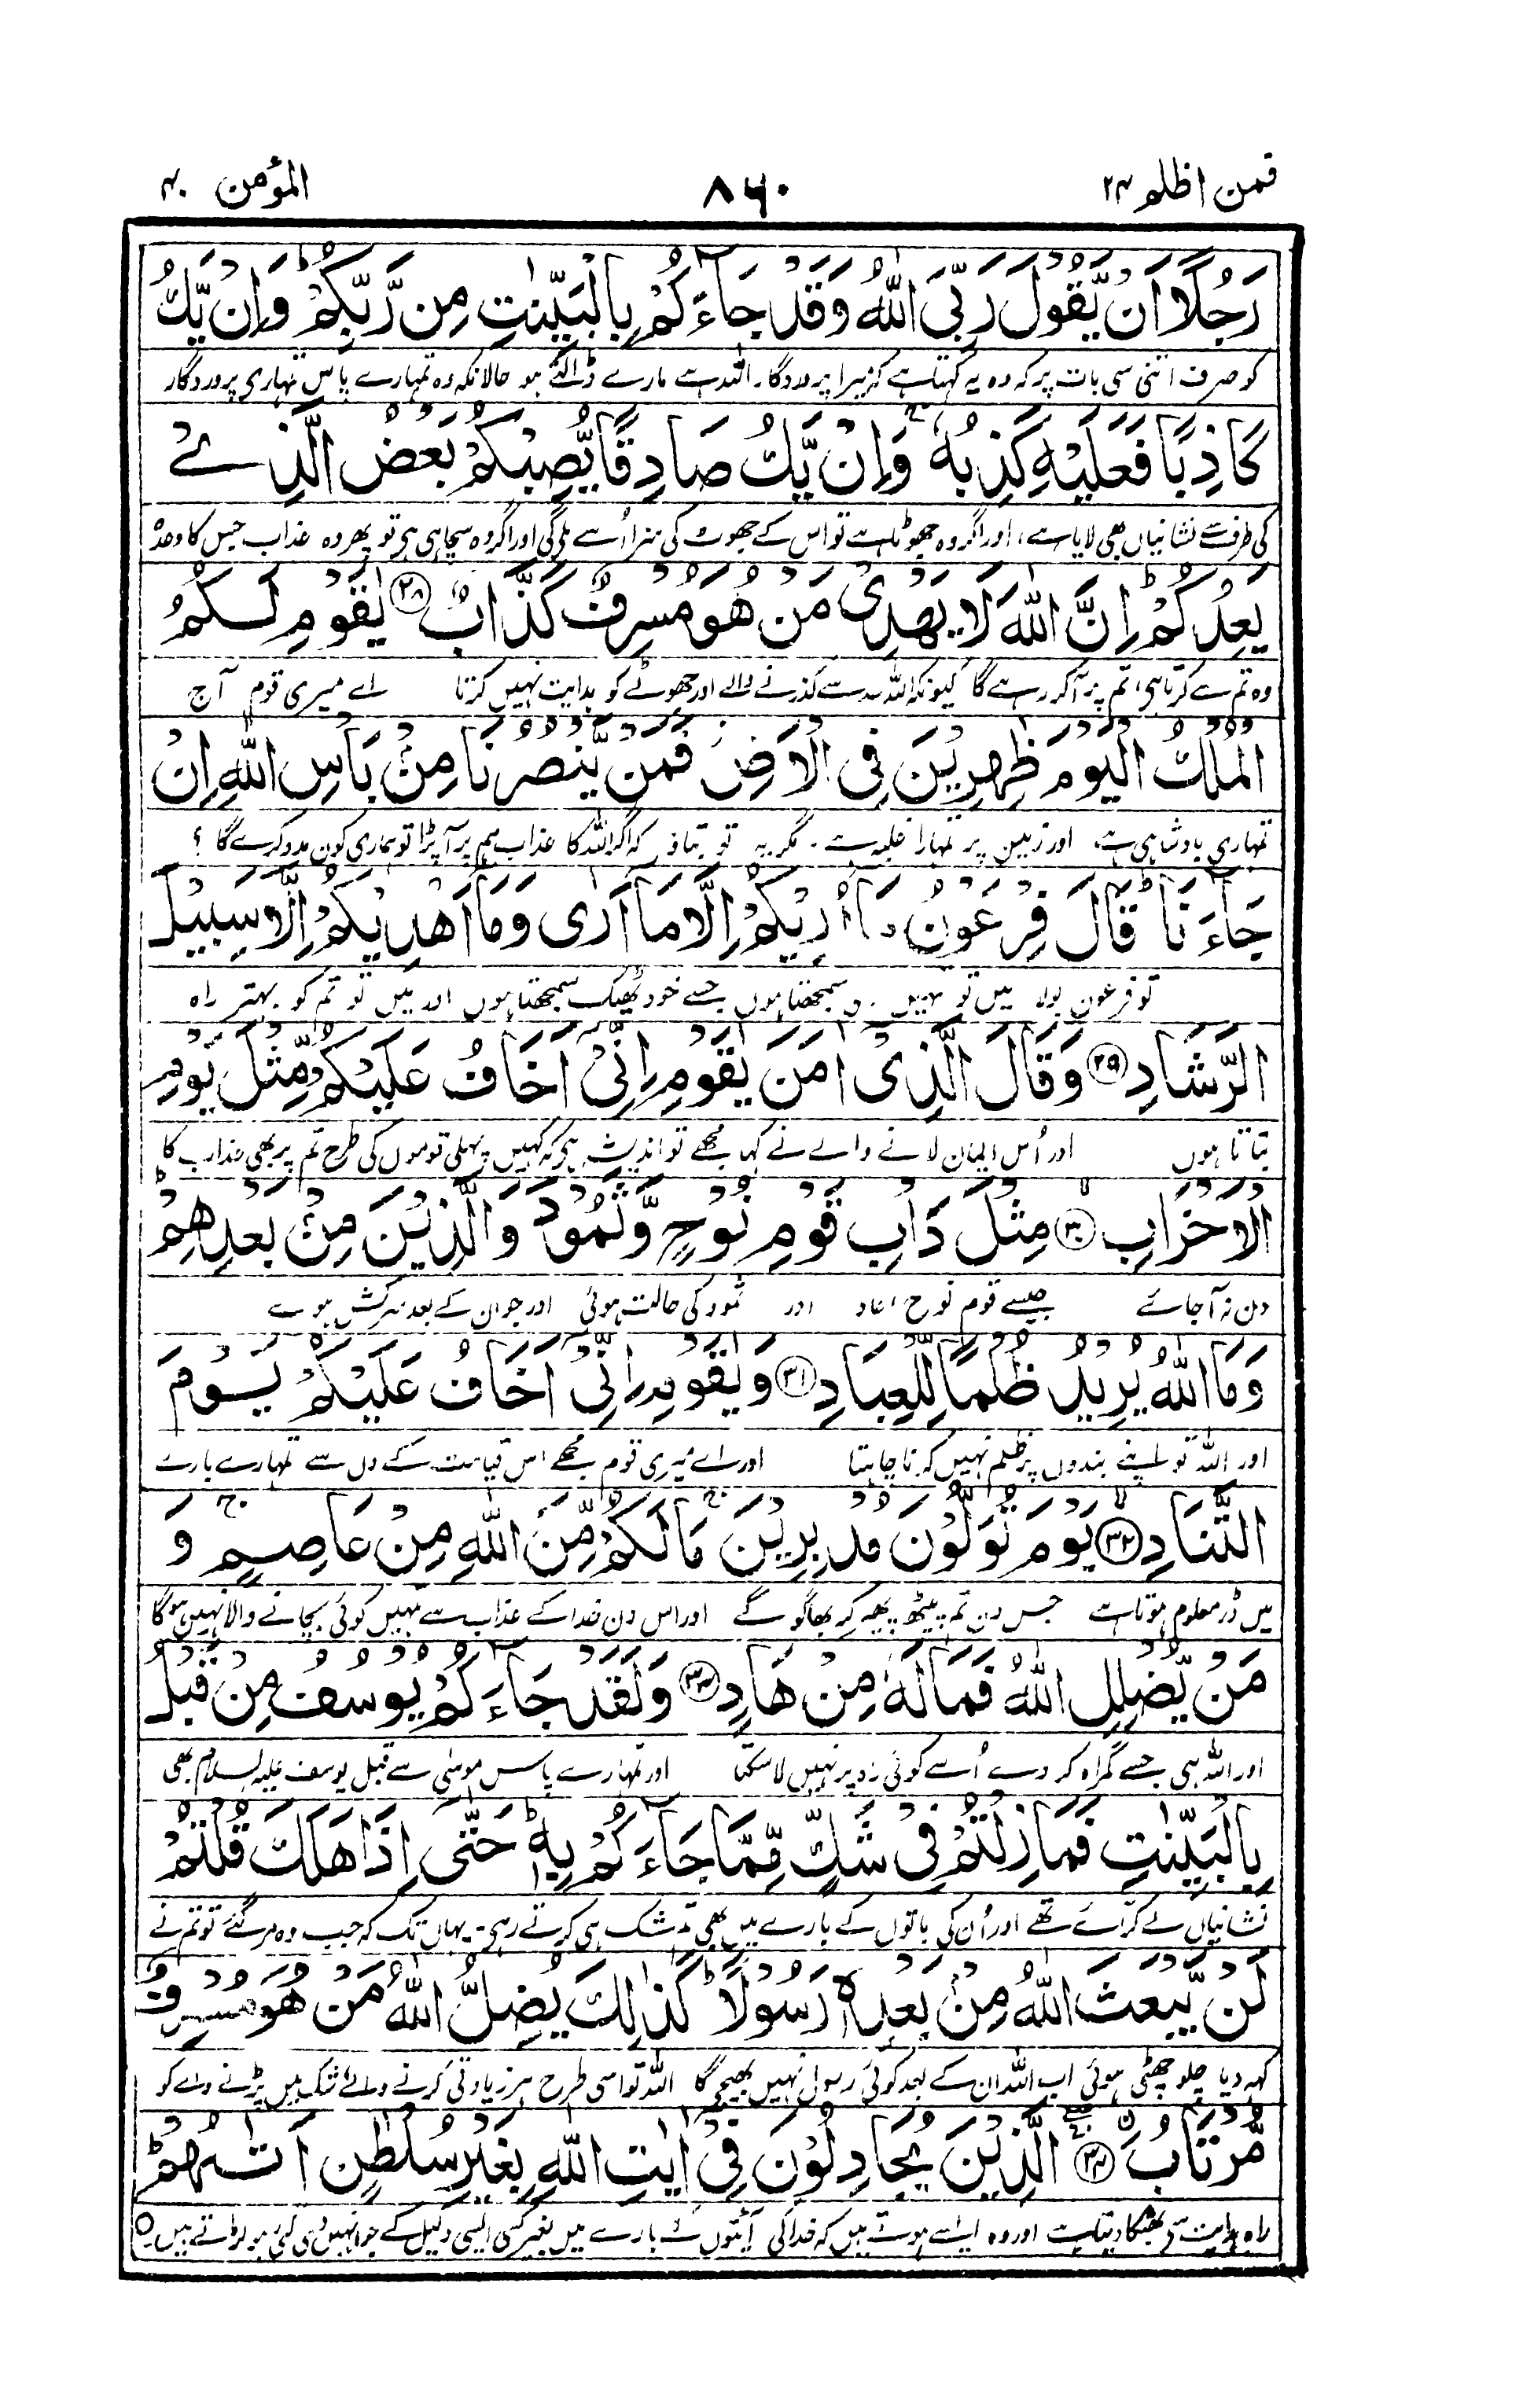 فمن اظلم ۲۴
۸۶۰
المؤمن ۴۰
رَجُلًا اَنْ یَّقُوْلَ رَبِّیَ اللّٰهُ وَقَدْ جَآءَكُمْ بِالْبَیِّنٰتِ مِنْ رَّبِّكُمْ ؕ وَاِنْ یَّكُ
کو صرف اتنی سی بات پر کہ وہ یہ کہتا ہے کہ میرا پروردگار اللہ ہے مارے ڈالتے ہو حالانکہ وہ تمہارے پاس تمہاری پروردگار
كَاذِبًا فَعَلَیْهِ كَذِبُهٗ ۚ وَاِنْ یَّكُ صَادِقًا یُّصِبْكُمْ بَعْضُ الَّذِیْ
کی طرف سے نشانیاں بھی لایا ہے، اور اگر وہ جھوٹا ہے تو اس کے جھوٹ کی سزا اُسے ملے گی اور اگر وہ سچا ہی ہی تو پھر وہ عذاب جس کا وعدہ
یَعِدُكُمْ ؕ اِنَّ اللّٰهَ لَا یَهْدِیْ مَنْ هُوَ مُسْرِفٌ كَذَّابٌ ۲۸ یٰقَوْمِ لَكُمُ
وہ تم سے کرتا ہی، تم پر آ کر رہے گا کیونکہ اللہ حد سے گذرنے والے اور جھوٹے کو ہدایت نہیں کرتا اے میری قوم آج
الْمُلْكُ الْیَوْمَ ظٰهِرِیْنَ فِی الْاَرْضِ ز فَمَنْ یَّنْصُرُنَا مِنْۢ بَاْسِ اللّٰهِ اِنْ
تمہاری بادشاہی ہے، اور زمین پر تمہارا غلبہ ہے۔ مگر یہ تو بتاؤ کہ اگر اللہ کا عذاب ہم پر آ پڑا تو ہماری کون مدد کرے گا ؟
جَآءَنَا ؕ قَالَ فِرْعَوْنُ مَاۤ اُرِیْكُمْ اِلَّا مَاۤ اَرٰی وَمَاۤ اَهْدِیْكُمْ اِلَّا سَبِیْلَ
تو فرعون بولا میں تو تمہیں وہی سمجھتا ہوں جسے خود ٹھیک سمجھتا ہوں اور میں تو تم کو بہتر راہ
الرَّشَادِ ۲۹ وَقَالَ الَّذِیْۤ اٰمَنَ یٰقَوْمِ اِنِّیْۤ اَخَافُ عَلَیْكُمْ مِّثْلَ یَوْمِ
بتاتا ہوں اور اُس ایمان لانے والے نے کہا مجھے تو اندیشہ ہی کہ کہیں پہلی قوموں کی طرح تم پر بھی عذاب کا
الْاَحْزَابِ ۳۰ مِثْلَ دَاْبِ قَوْمِ نُوْحٍ وَّثَمُوْدَ وَالَّذِیْنَ مِنْۢ بَعْدِهِمْ ؕ
دن نہ آ جائے جیسے قوم نوح عاد اور ثمود کی حالت ہوئی اور جو ان کے بعد سرکش ہوے
وَمَا اللّٰهُ یُرِیْدُ ظُلْمًا لِّلْعِبَادِ ۳۱ وَیٰقَوْمِ اِنِّیْۤ اَخَافُ عَلَیْكُمْ یَوْمَ
اور اللہ تو اپنے بندوں پر ظلم نہیں کرنا چاہتا اور اے میری قوم مجھے اس قیامت کے دن سے تمہارے بارے
التَّنَادِ ۳۲ یَوْمَ تُوَلُّوْنَ مُدْبِرِیْنَ ۚ مَا لَكُمْ مِّنَ اللّٰهِ مِنْ عَاصِمٍ ۚ وَ
میں ڈر معلوم ہوتا ہے جس دن تم پیٹھ پھیر کر بھاگو گے اور اس دن خدا کے عذاب سے تمہیں کوئی بچانے والا نہیں ہوگا
مَنْ یُّضْلِلِ اللّٰهُ فَمَا لَهٗ مِنْ هَادٍ ۳۳ وَلَقَدْ جَآءَكُمْ یُوْسُفُ مِنْ قَبْلُ
اور اللہ ہی جسے گمراہ کر دے اُسے کوئی راہ پر نہیں لا سکتا اور تمہارے پاس موسٰی سے قبل یوسف علیہ السلام بھی
بِالْبَیِّنٰتِ فَمَا زِلْتُمْ فِیْ شَكٍّ مِّمَّا جَآءَكُمْ بِهٖ ؕ حَتّٰۤی اِذَا هَلَكَ قُلْتُمْ
نشانیاں لے کر آئے تھے اور اُن کی باتوں کے بارے میں بھی تم شک ہی کرتے رہی۔ یہاں تک کہ جب وہ مر گئے تو تم نے
لَنْ یَّبْعَثَ اللّٰهُ مِنْۢ بَعْدِهٖ رَسُوْلًا ؕ كَذٰلِكَ یُضِلُّ اللّٰهُ مَنْ هُوَ مُسْرِفٌ
کہہ دیا چلو چھٹی ہوئی اب اللہ ان کے بعد کوئی رسول نہیں بھیجے گا اللہ تو اسی طرح ہر زیادتی کرنے والے شک میں پڑنے والے کو
مُّرْتَابٌ ۳۴ الَّذِیْنَ یُجَادِلُوْنَ فِیْۤ اٰیٰتِ اللّٰهِ بِغَیْرِ سُلْطٰنٍ اَتٰىهُمْ ؕ
راہ ہدایت سے بھٹکا دیتا ہے اور وہ ایسے ہوتے ہیں کہ خدا کی آیتوں کے بارے میں بغیر کسی ایسی دلیل کے جو انہیں دی گئی ہو لڑاتے ہیں۔